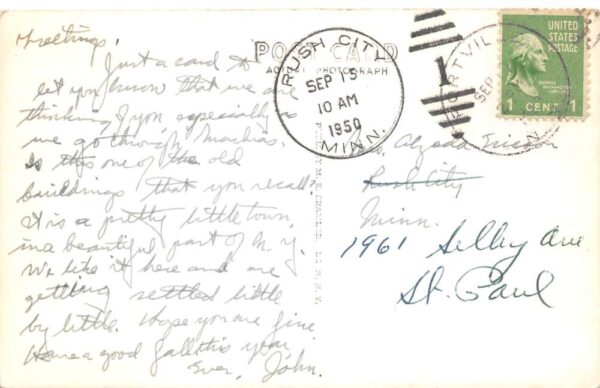 Greetings,
Just a card to
let you know that we are
thinking of you especially as
we go through Machias.
Is this one of the old
buildings that you recall?
It is a pretty little town
in a beautiful part of N. Y.
We like it here and are
getting settled little
by little. Hope you are fine
Have a good fall this year
Ever, John.
POST CARD
PHOTOGRAPH
RUSH CITY
SEP 15
10 AM
1950
MINN.
1
SEP
UNITED
STATES
POSTAGE
1 CENT 1
Ericson
Rush City
Minn.
1961 Selby Ave
St. Paul